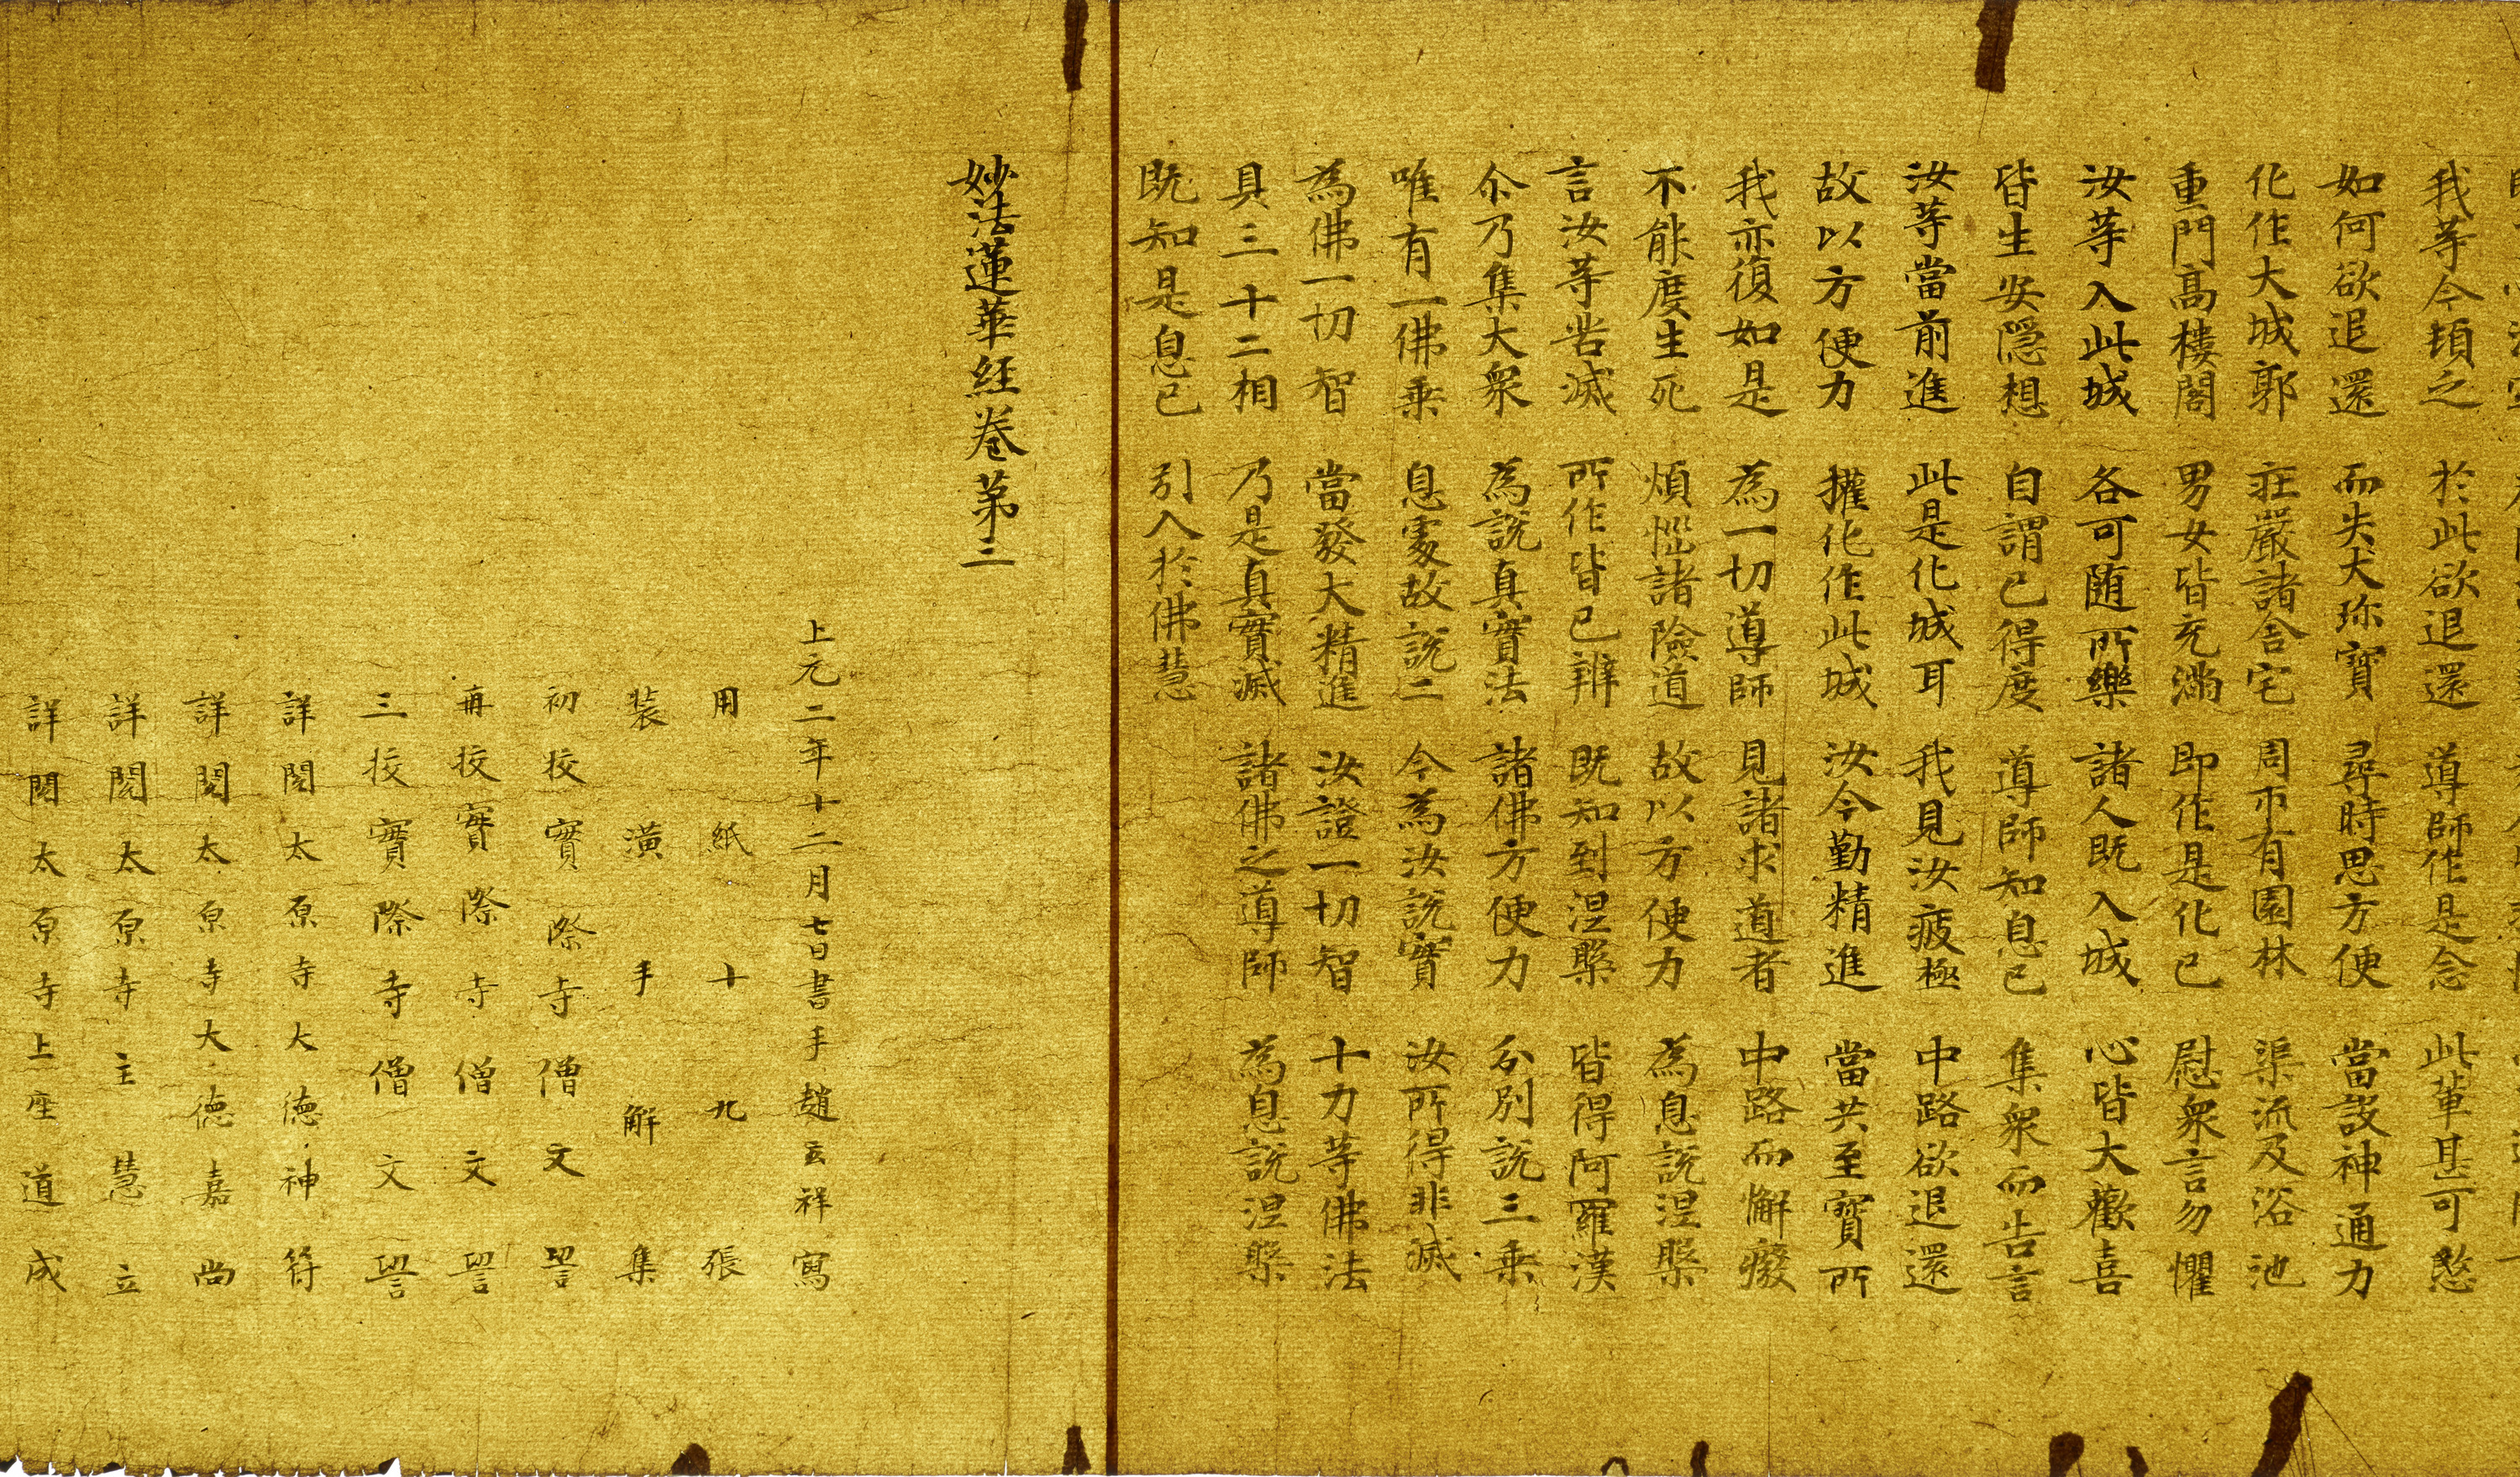 我等今頓乏 於此欲退還 導師作是念 此輩甚可愍
如何欲退還 而失大珎寶 尋時思方便 當設神通力
化作大城郭 莊嚴諸舍宅 周帀有園林 渠流及浴池
重門高樓閣 男女皆充滿 即作是化已 慰衆言勿懼
汝等入此城 各可随所樂 諸人既入城 心皆大歡喜
皆生安隱想 自謂已得度 導師知息已 集衆而告言
汝等當前進 此是化城耳 我見汝疲極 中路欲退還
故以方便力 權化作此城 汝今勤精進 當共至寶所
我亦復如是 為一切導師 見諸求道者 中路而懈癈
不能度生死 煩惱諸險道 故以方便力 為息說涅槃
言汝等苦滅 所作皆已辨 既知到涅槃 皆得阿羅漢
尒乃集大衆 為說真實法 諸佛方便力 分別說三乗
唯有一佛乗 息處故說二 今為汝說實 汝所得非滅
為佛一切智 當發大精進 汝證一切智 十力等佛法
具三十二相 乃是真實滅 諸佛之導師 為息說涅槃
既知是息已 引入於佛慧
妙法蓮華經卷第三
上元二年十二月七日書手趙玄祥寫
用紙十九張
裝潢手解集
初校實際寺僧文㽞
再校實際寺僧文㽞
三校實際寺僧文㽞
詳閱太原寺大德神符
詳閱太原寺大德嘉尚
詳閱太原寺主慧立
詳閱太原寺上座道成